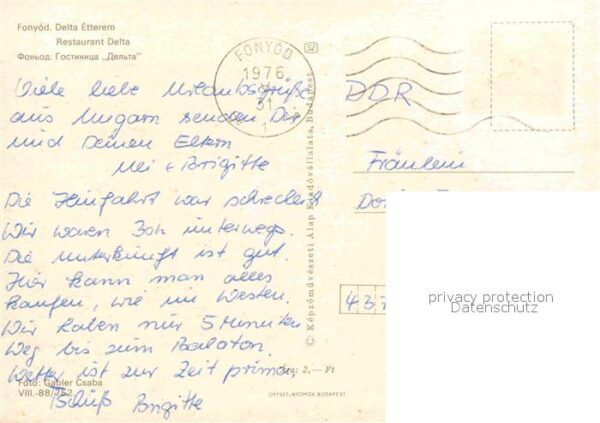 Fonyód. Delta Étterem
Restaurant Delta
Фоньод. Гостиница „Дельта"
FONYÓD
1976
31
SZ
Viele liebe Urlaubsgrüße
aus Ungarn senden Dir
und Deinen Eltern
+ Brigitte
Die Hinfahrt war schrecklich
Wir waren 30h unterwegs.
Die Unterkunft ist gut.
Hier kann man alles
kaufen, wie im Westen.
Wir haben nur 5 Minuten
Weg bis zum Balaton.
Wetter ist zur Zeit prima.
Tschüß Brigitte
Foto: Gabler Csaba
VIII.-88/762
© Képzőművészeti Alap Kiadóvállalata, Budapest
Ára: 2,— Ft
OFFSET-NYOMDA BUDAPEST
DDR
Fräulein
437
privacy protection
Datenschutz